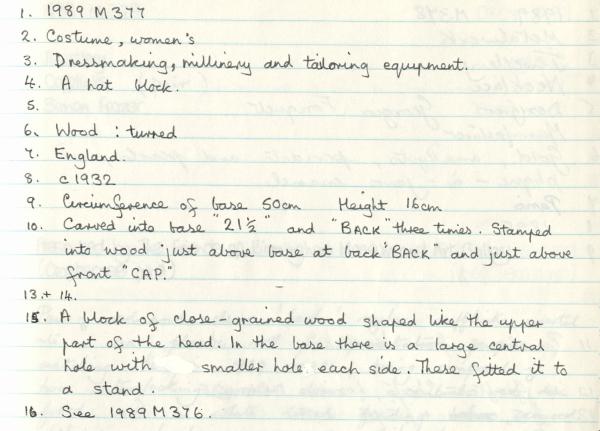 1. 1989 M377
2. Costume, women's
3. Dressmaking, millinery and tailoring equipment.
4. A hat block.
5.
6. Wood : turned
7. England.
8. c1932
9. Circumference of base 50cm Height 16cm
10. Carved into base "21½" and "BACK" three times. Stamped
into wood just above base at back "BACK" and just above
front "CAP."
13.+ 14.
15. A block of close-grained wood shaped like the upper
part of the head. In the base there is a large central
hole with smaller hole each side. These fitted it to
a stand.
16. See 1989 M376.